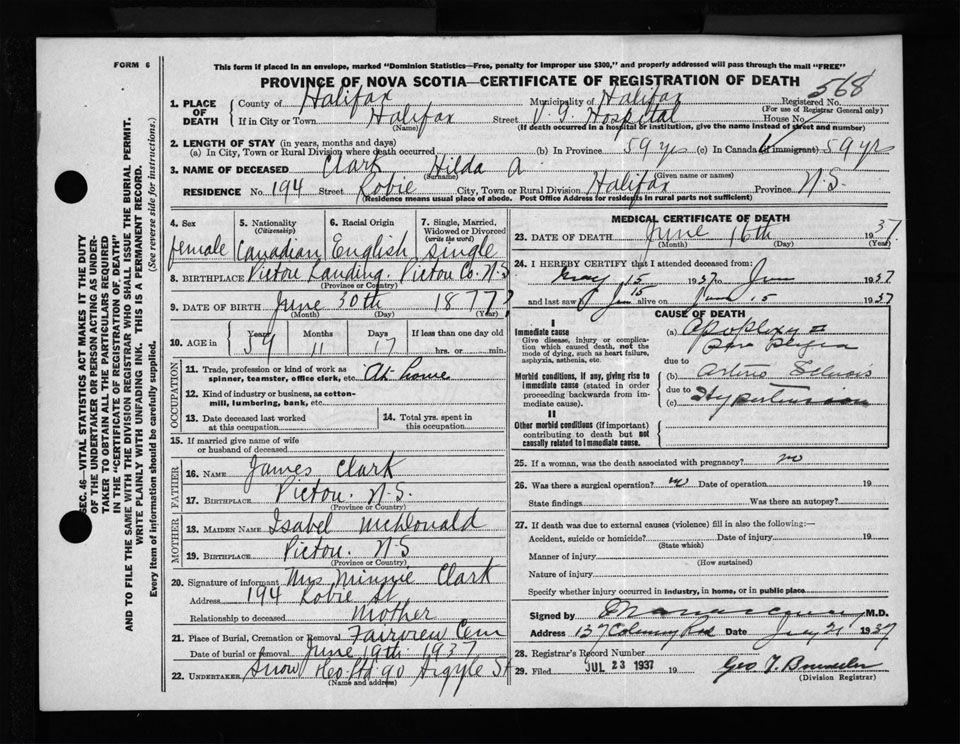 FORM 6
This form if placed in an envelope, marked "Dominion Statistics—Free, penalty for improper use $300," and properly addressed will pass through the mail "FREE"
PROVINCE OF NOVA SCOTIA—CERTIFICATE OF REGISTRATION OF DEATH
568
1. PLACE OF DEATH County of Halifax Municipality of Halifax Registered No.
(For use of Registrar General only)
If in City or Town Halifax Street V. G. Hospital House No.
(Name) (If death occurred in a hospital or institution, give the name instead of street and number)
2. LENGTH OF STAY (in years, months and days)
(a) In City, Town or Rural Division where death occurred (b) In Province 59 yrs (c) In Canada (if immigrant) 59 yrs
3. NAME OF DECEASED Clark Hilda A
(Surname) (Given name or names)
RESIDENCE No. 194 Street Robie City, Town or Rural Division Halifax Province N.S.
(Residence means usual place of abode. Post Office Address for residents in rural parts not sufficient)
4. Sex female
5. Nationality (Citizenship) Canadian
6. Racial Origin English
7. Single, Married, Widowed or Divorced (write the word) single
8. BIRTHPLACE Pictou Landing. Pictou Co. N.S
(Province or Country)
9. DATE OF BIRTH June 30th 1877?
(Month) (Day) (Year)
10. AGE in Years 59 Months 11 Days 17 If less than one day old hrs. or min.
OCCUPATION
11. Trade, profession or kind of work as spinner, teamster, office clerk, etc. At home
12. Kind of industry or business, as cotton-mill, lumbering, bank, etc.
13. Date deceased last worked at this occupation
14. Total yrs. spent in this occupation
15. If married give name of wife or husband of deceased
FATHER
16. NAME James Clark
17. BIRTHPLACE Pictou. N.S.
(Province or Country)
MOTHER
18. MAIDEN NAME Isabel McDonald
19. BIRTHPLACE Pictou. N.S
(Province or Country)
20. Signature of informant Mrs Minnie Clark
Address 194 Robie St
Relationship to deceased Mother
21. Place of Burial, Cremation or Removal Fairview Cem
Date of burial or removal June 19th 1937
22. UNDERTAKER Snow & Co. Ltd 90 Argyle St
(Name and address)
MEDICAL CERTIFICATE OF DEATH
23. DATE OF DEATH June 16th 1937.
(Month) (Day) (Year)
24. I HEREBY CERTIFY that I attended deceased from:
May 15 1937 to Jun 1937
and last saw alive on June 15 1937
CAUSE OF DEATH
I
Immediate cause
Give disease, injury or complication which caused death, not the mode of dying, such as heart failure, asphyxia, asthenia, etc.
(a) Apoplexy
due to
Morbid conditions, if any, giving rise to immediate cause (stated in order proceeding backwards from immediate cause).
(b)
due to
(c) Hypertension
II
Other morbid conditions (if important) contributing to death but not causally related to immediate cause.
25. If a woman, was the death associated with pregnancy? no
26. Was there a surgical operation? no Date of operation 19
State findings Was there an autopsy?
27. If death was due to external causes (violence) fill in also the following:—
Accident, suicide or homicide? Date of injury 19
(State which)
Manner of injury
(How sustained)
Nature of injury
Specify whether injury occurred in industry, in home, or in public place
Signed by M.D.
Address 137 Date July 21 1937
28. Registrar's Record Number
29. Filed JUL 23 1937 19 Geo T.
(Division Registrar)
SEC. 46—VITAL STATISTICS ACT MAKES IT THE DUTY
OF THE UNDERTAKER OR PERSON ACTING AS UNDER-
TAKER TO OBTAIN ALL THE PARTICULARS REQUIRED
IN THE "CERTIFICATE OF REGISTRATION OF DEATH"
AND TO FILE THE SAME WITH THE DIVISION REGISTRAR WHO SHALL ISSUE THE BURIAL PERMIT.
WRITE PLAINLY WITH UNFADING INK. THIS IS A PERMANENT RECORD.
Every item of information should be carefully supplied. (See reverse side for instructions.)